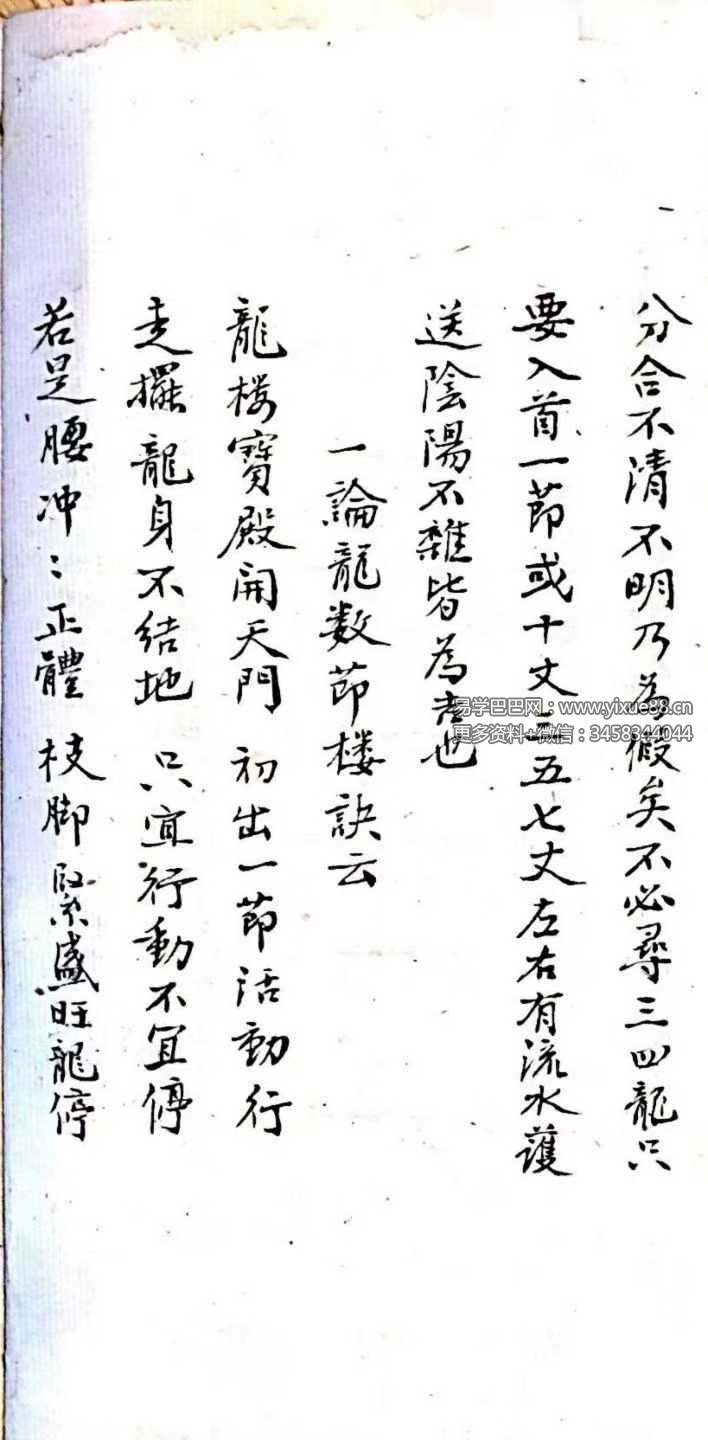 分合不清不明乃為假矣不必尋三四龍只
要入首一節或十丈三五七丈左右有流水護
送陰陽不雜皆為吉也
一論龍数節楼訣云
龍楼寶殿開天門 初出一節活動行
走擺龍身不结地 只宜行動不宜停
若是腰冲：正體 枝脚緊盛旺龍停
易学巴巴网：www.yixue88.cn
更多资料+微信：3458344044